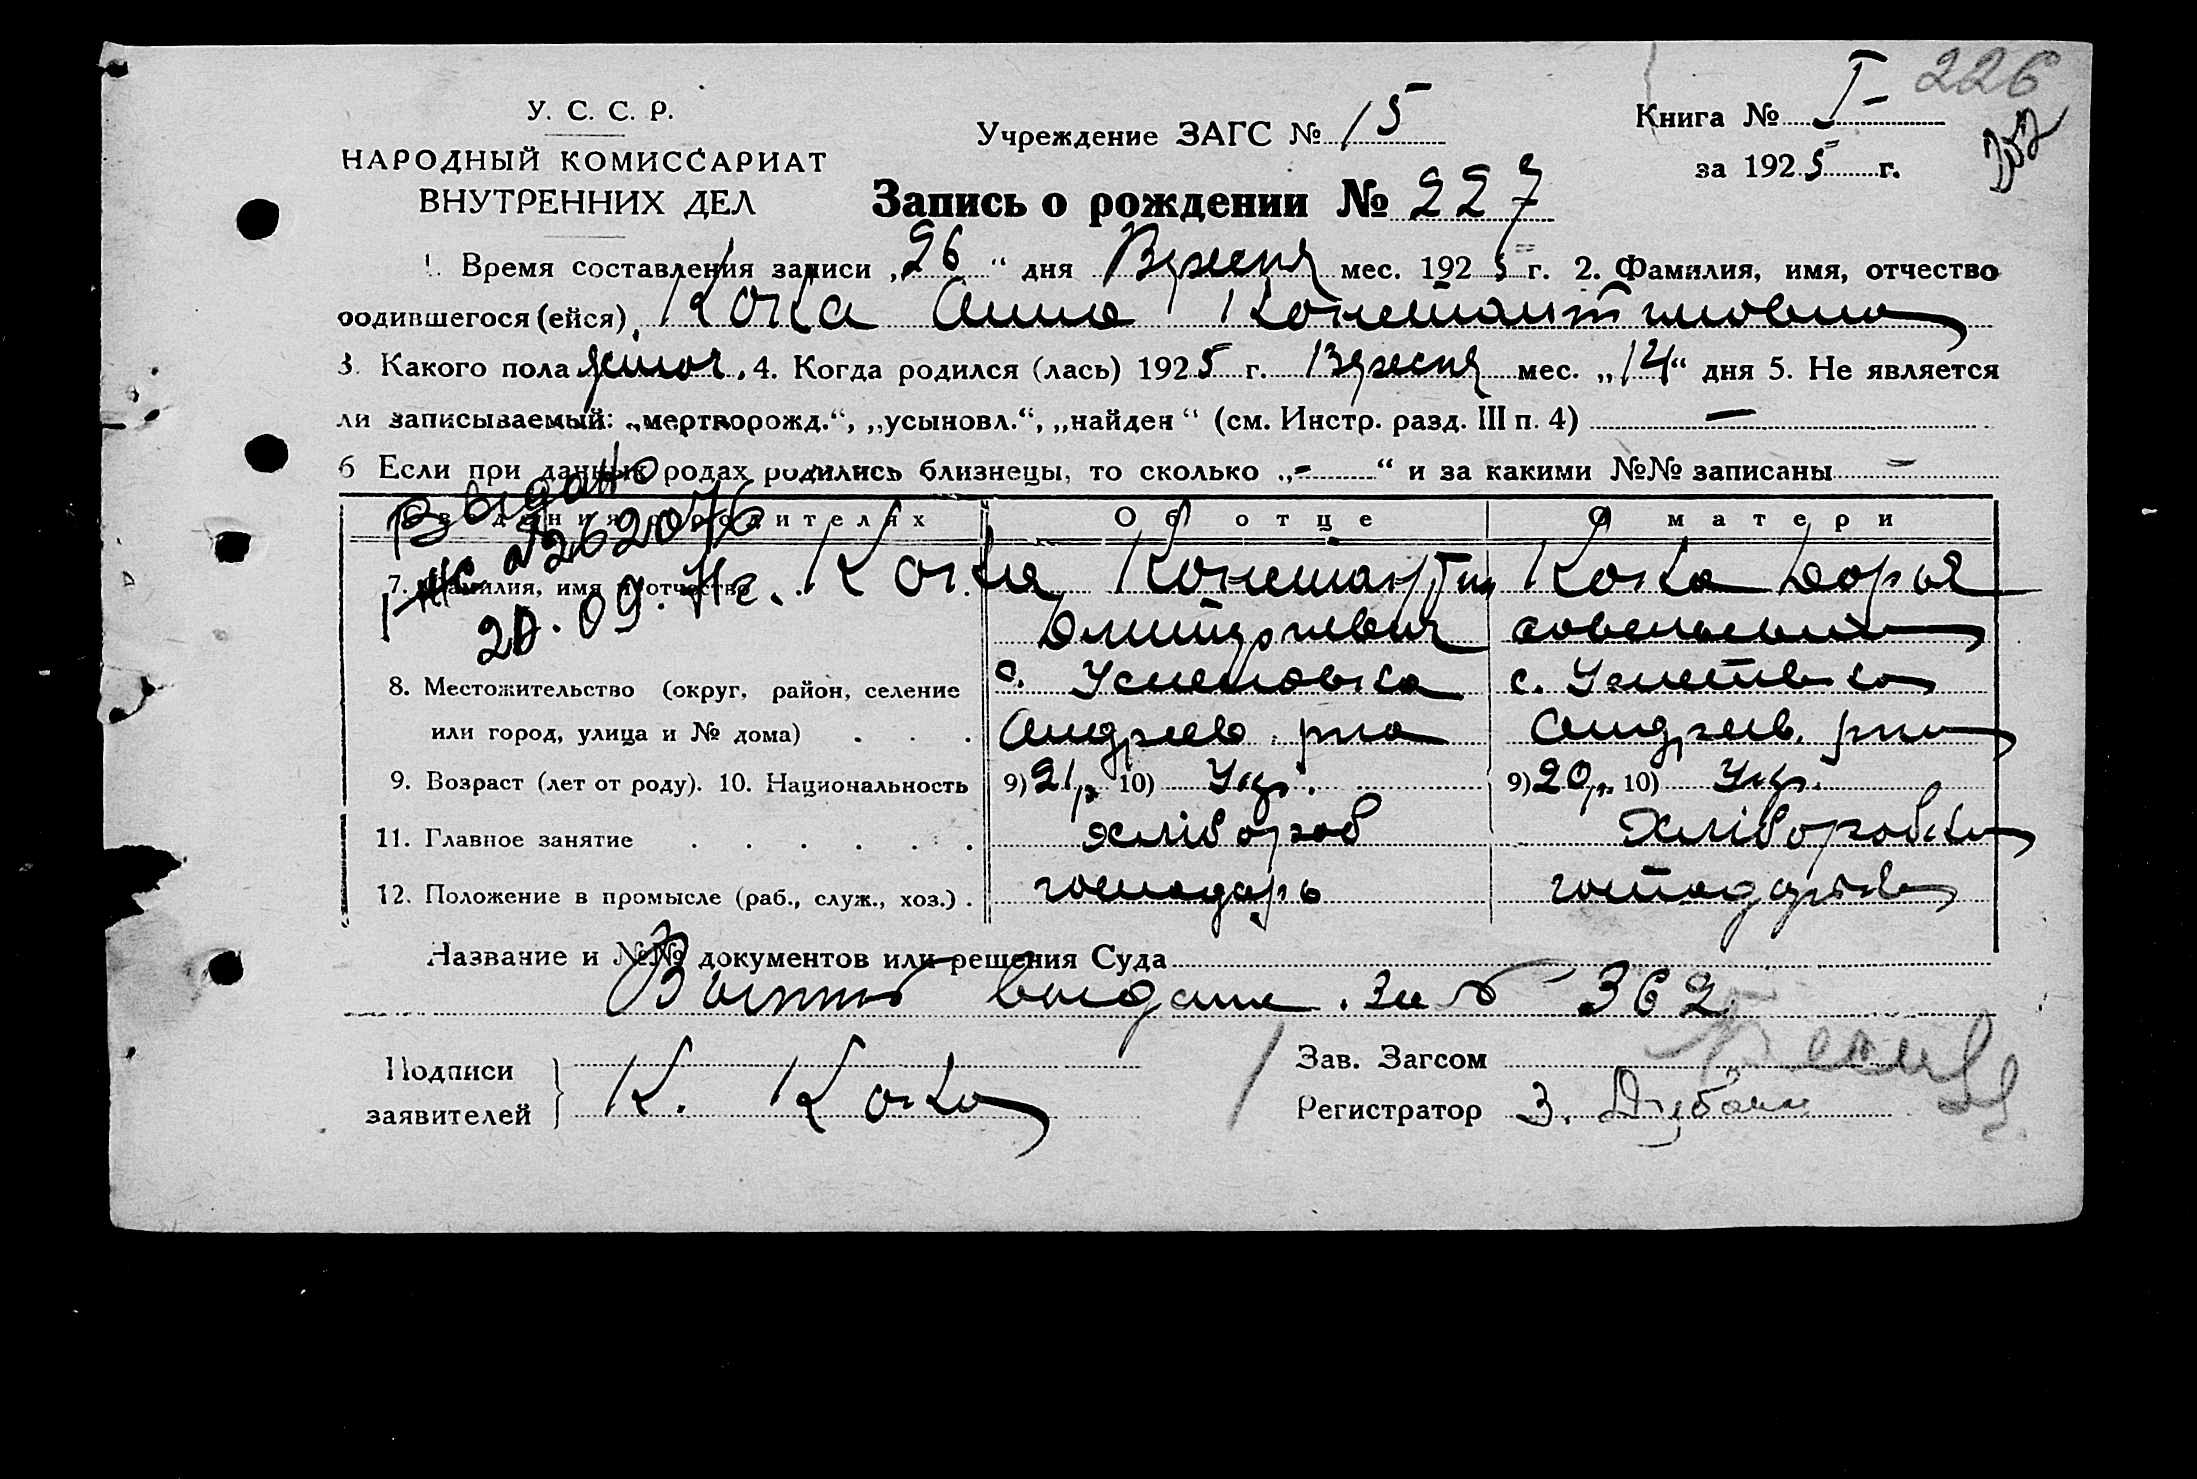 226
У. С. С. Р.
НАРОДНЫЙ КОМИССАРИАТ
ВНУТРЕННИХ ДЕЛ
Учреждение ЗАГС № 15
Книга № I-
за 1925 г.
Запись о рождении № 227
1. Время составления записи „26“ дня Вересня мес. 1925 г. 2. Фамилия, имя, отчество
родившегося (ейся) Кока Анна Константиновна
3. Какого пола жіноч. 4. Когда родился (лась) 1925 г. Вересня мес. „14“ дня 5. Не является
ли записываемый: „мертворожд.“, „усыновл.“, „найден“ (см. Инстр. разд. III п. 4) —
6 Если при данных родах родились близнецы, то сколько „-“ и за какими №№ записаны —
Выдано
262076
20.09.
Сведения о родителях Об отце О матери
7. Фамилия, имя и отчество Кока Константин Кока Дарья
Дмитриевич Савельевна
8. Местожительство (округ, район, селение с. Успеновка с. Успенівка
или город, улица и № дома) Андреев. рна Андреев. рну
9. Возраст (лет от роду). 10. Национальность 9) 21 р. 10) Укр. 9) 20 р. 10) Укр.
11. Главное занятие хлібороб хлібороб
12. Положение в промысле (раб., служ., хоз.) господарь
Название и №№ документов или решения Суда
Витяг выдани. За № 362
Подписи
заявителей К. Кока
Зав. Загсом
Регистратор З.